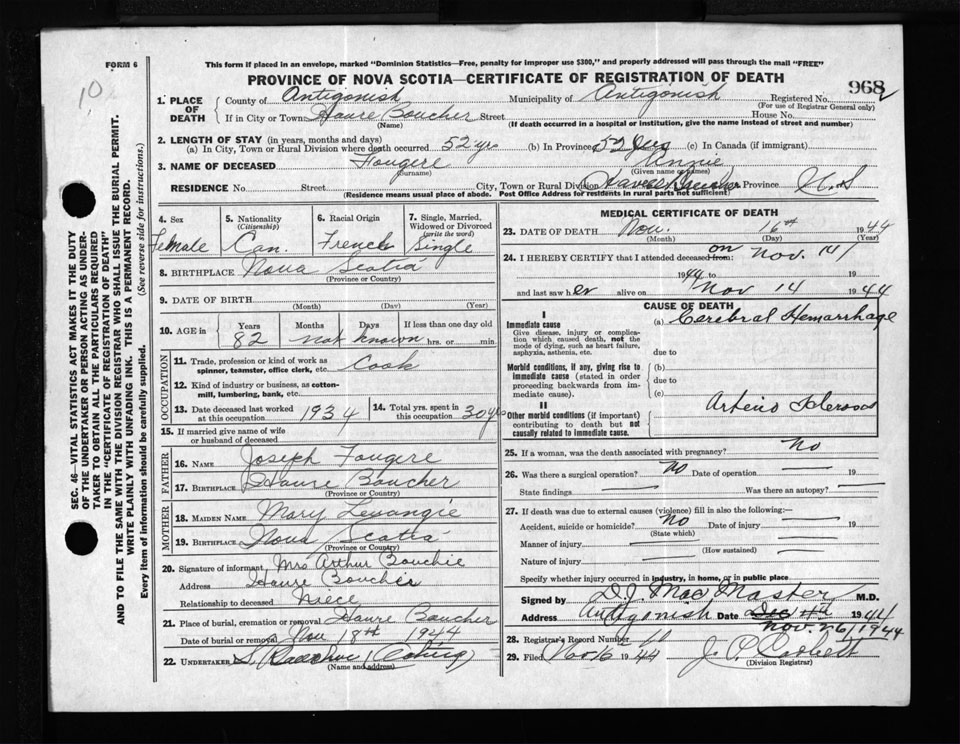 FORM 6
10
This form if placed in an envelope, marked "Dominion Statistics—Free, penalty for improper use $300," and properly addressed will pass through the mail "FREE"
PROVINCE OF NOVA SCOTIA—CERTIFICATE OF REGISTRATION OF DEATH
968
1. PLACE OF DEATH
County of Antigonish Municipality of Antigonish Registered No.
(For use of Registrar General only)
If in City or Town Havre Boucher Street House No.
(Name) (If death occurred in a hospital or institution, give the name instead of street and number)
2. LENGTH OF STAY (in years, months and days)
(a) In City, Town or Rural Division where death occurred 52 yrs (b) In Province 52 yrs (c) In Canada (if immigrant)
3. NAME OF DECEASED Fougere Annie
(Surname) (Given name or names)
RESIDENCE No. Street City, Town or Rural Division Havre Boucher Province N.S
(Residence means usual place of abode. Post Office Address for residents in rural parts not sufficient)
4. Sex Female
5. Nationality (Citizenship) Can.
6. Racial Origin French
7. Single, Married, Widowed or Divorced (write the word) Single
8. BIRTHPLACE Nova Scotia
(Province or Country)
9. DATE OF BIRTH
(Month) (Day) (Year)
10. AGE in Years Months Days If less than one day old
82 not known hrs. or min.
OCCUPATION
11. Trade, profession or kind of work as spinner, teamster, office clerk, etc. Cook
12. Kind of industry or business, as cotton-mill, lumbering, bank, etc.
13. Date deceased last worked at this occupation 1934
14. Total yrs. spent in this occupation 30 yrs
15. If married give name of wife or husband of deceased
FATHER
16. NAME Joseph Fougere
17. BIRTHPLACE Havre Boucher
(Province or Country)
MOTHER
18. MAIDEN NAME Mary Levangie
19. BIRTHPLACE Nova Scotia
(Province or Country)
20. Signature of informant Mrs Arthur Bouchie
Address Havre Boucher
Relationship to deceased Niece
21. Place of burial, cremation or removal Havre Boucher
Date of burial or removal Nov 18th 1944
22. UNDERTAKER
(Name and address)
MEDICAL CERTIFICATE OF DEATH
23. DATE OF DEATH Nov. 16th 1944
(Month) (Day) (Year)
24. I HEREBY CERTIFY that I attended deceased from: on Nov. 14
1944 to 19
and last saw her alive on Nov 14 1944
CAUSE OF DEATH
I
Immediate cause (a) Cerebral Hemarrhage
Give disease, injury or complication which caused death, not the mode of dying, such as heart failure, asphyxia, asthenia, etc.
due to
Morbid conditions, if any, giving rise to immediate cause (stated in order proceeding backwards from immediate cause).
(b)
due to
(c)
II
Other morbid conditions (if important) contributing to death but not causally related to immediate cause.
Arterio
25. If a woman, was the death associated with pregnancy? No
26. Was there a surgical operation? No Date of operation 19
State findings Was there an autopsy?
27. If death was due to external causes (violence) fill in also the following:—
Accident, suicide or homicide? No Date of injury 19
(State which)
Manner of injury
(How sustained)
Nature of injury
Specify whether injury occurred in industry, in home, or in public place
Signed by D.J. MacMaster M.D.
Address Antigonish Date Dec 4th 1944
Nov. 26/1944
28. Registrar's Record Number
29. Filed Nov 16 1944 J. P. Corbett
(Division Registrar)
SEC. 46—VITAL STATISTICS ACT MAKES IT THE DUTY
OF THE UNDERTAKER OR PERSON ACTING AS UNDER-
TAKER TO OBTAIN ALL THE PARTICULARS REQUIRED
IN THE "CERTIFICATE OF REGISTRATION OF DEATH"
AND TO FILE THE SAME WITH THE DIVISION REGISTRAR WHO SHALL ISSUE THE BURIAL PERMIT.
WRITE PLAINLY WITH UNFADING INK. THIS IS A PERMANENT RECORD.
Every item of information should be carefully supplied. (See reverse side for instructions.)